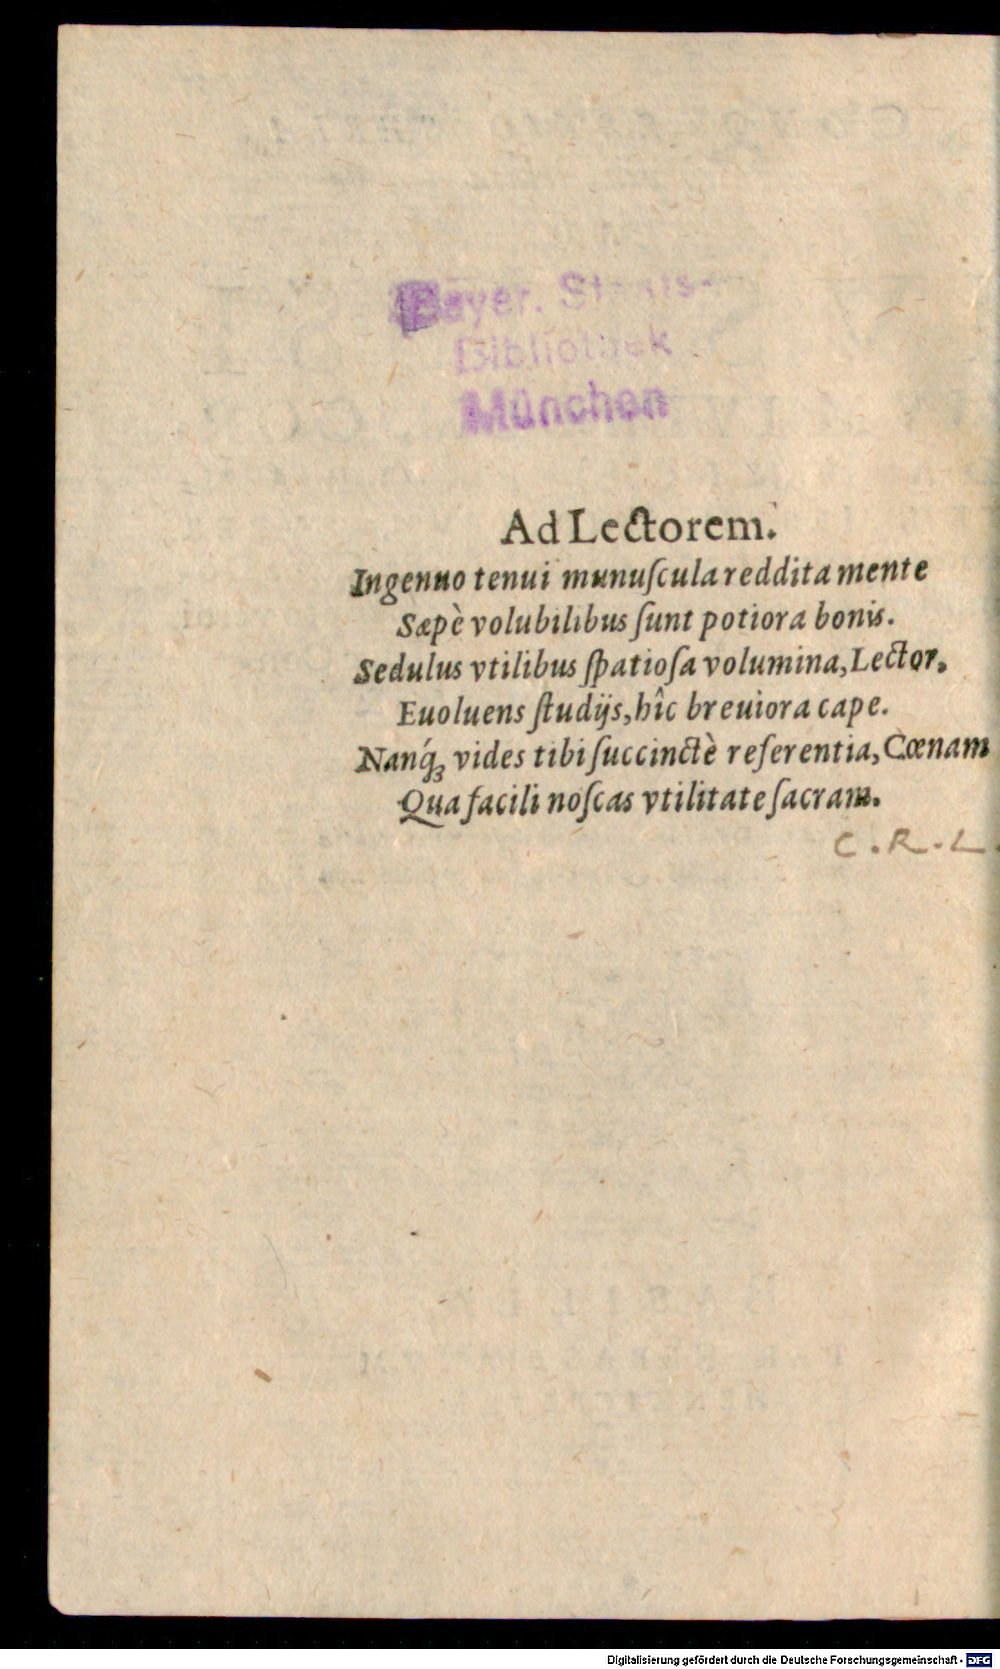 Bayer. Staats-
Bibliothek
München
Ad Lectorem.
Ingenuo tenui munuſcula reddita mente
Sæpè volubilibus ſunt potiora bonis.
Sedulus vtilibus ſpatioſa volumina, Lector,
Euoluens ſtudijs, hîc breuiora cape.
Nanq́ꝫ vides tibi ſuccinctè referentia, Cœnam
Qua facili noſcas vtilitate ſacram.
C. R. L.
Digitalisierung gefördert durch die Deutsche Forschungsgemeinschaft - DFG